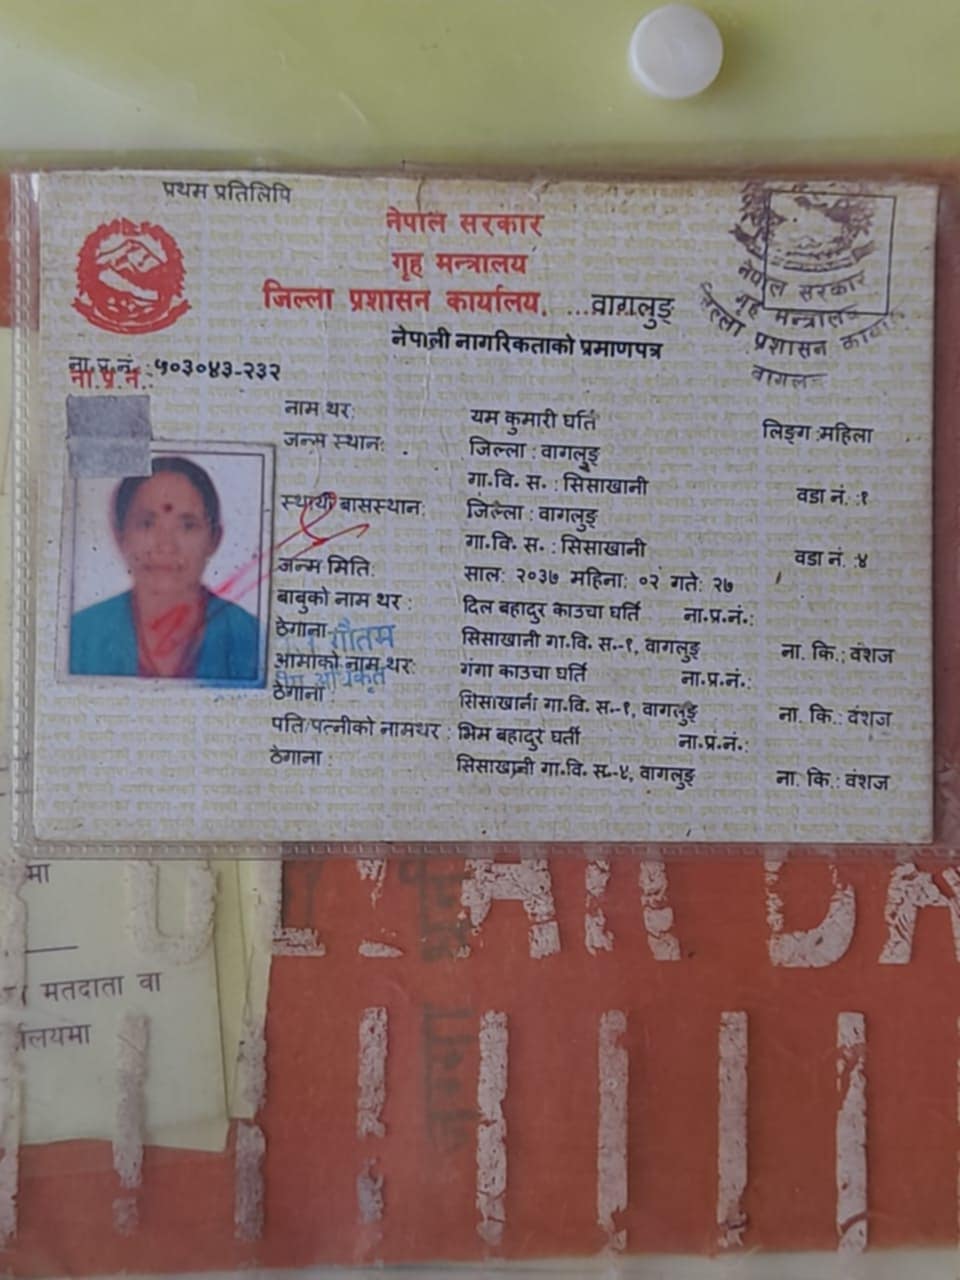 प्रथम प्रतिलिपि
नेपाल सरकार
गृह मन्त्रालय
जिल्ला प्रशासन कार्यालय, ...वागलुङ्ग
नेपाली नागरिकताको प्रमाणपत्र
नेपाल सरकार
गृह मन्त्रालय
जिल्ला प्रशासन
ना.प्र.नं.: ५०३०४३-२३२
ना.प्र.नं.:
नाम थर: यम कुमारी घर्ति लिङ्ग :महिला
जन्म स्थान: जिल्ला : वागलुङ्ग
गा.वि. स. : सिसाखानी वडा नं. :१
स्थायी बासस्थान: जिल्ला : वागलुङ्ग
गा.वि. स. : सिसाखानी वडा नं. :४
जन्म मिति: साल: २०३७ महिना: ०२ गते: २७
बाबुको नाम थर : दिल बहादुर काउचा घर्ति ना.प्र.नं.:
ठेगाना: सिसाखानी गा.वि. स.-१, वागलुङ्ग ना. कि.: वंशज
गौतम
आमाको नाम थर: गंगा काउचा घर्ति ना.प्र.नं.:
ठेगाना : सिसाखानी गा.वि. स.-१, वागलुङ्ग ना. कि.: वंशज
पति/पत्नीको नामथर : भिम बहादुर घर्ती ना.प्र.नं.:
ठेगाना : सिसाखानी गा.वि. स.-४, वागलुङ्ग ना. कि.: वंशज
मतदाता वा